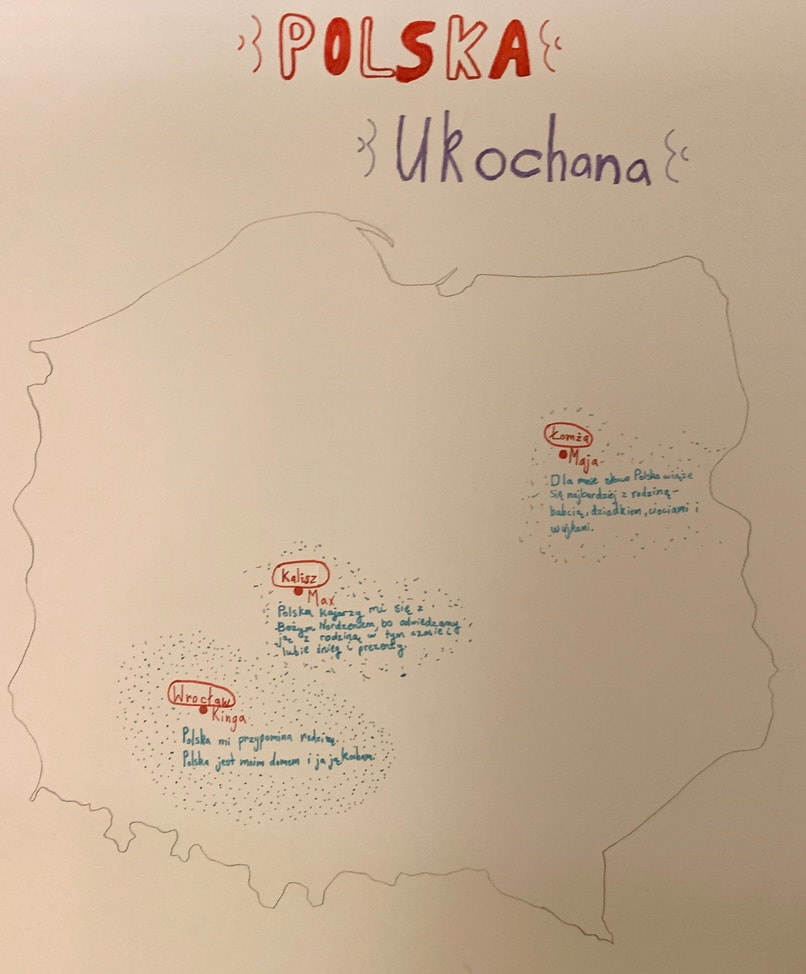 POLSKA
Ukochana
Łomża
Maja
Dla mnie słowo Polska wiąże
się najbardziej z rodziną-
babcią, dziadkiem, ciociami i
wujkami.
Kalisz
Max
Polska kojarzy mi się z
Bożym Nardzeniem, bo odwiedzamy
ją z rodziną w tym czasie i
lubie śnieg i prezenty.
Wrocław
Kinga
Polska mi przypomina rodzinę.
Polska jest moim domem i ja ją kocham.